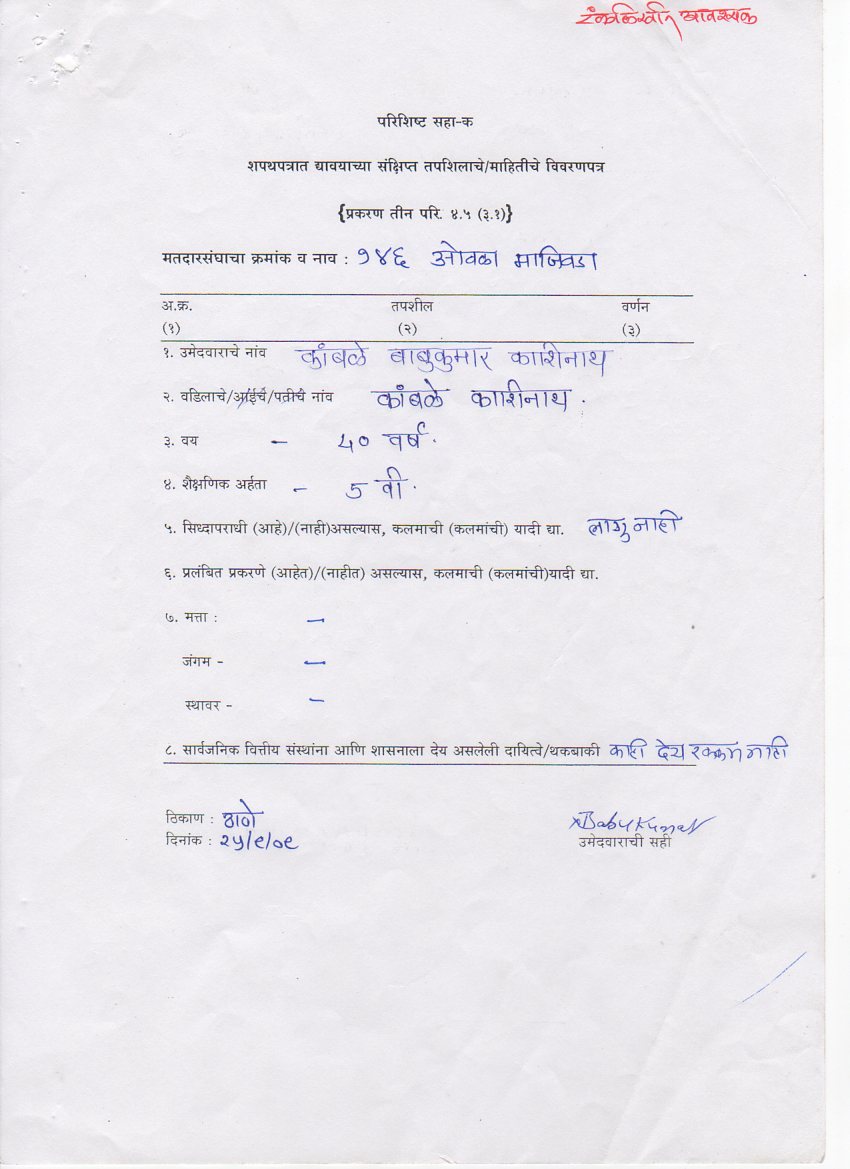 टंकलिखीत आवश्यक
परिशिष्ट सहा-क
शपथपत्रात द्यावयाच्या संक्षिप्त तपशिलाचे/माहितीचे विवरणपत्र
{प्रकरण तीन परि. ४.५ (३.१)}
मतदारसंघाचा क्रमांक व नाव : १४६ ओवळा माजिवडा
अ.क्र. तपशील वर्णन
(१) (२) (३)
१. उमेदवाराचे नांव कांबळे बाबुकुमार काशिनाथ
२. वडिलाचे/आईचे/पतीचे नांव कांबळे काशिनाथ.
३. वय - ४० वर्ष.
४. शैक्षणिक अर्हता - 5 वी.
५. सिध्दापराधी (आहे)/(नाही)असल्यास, कलमाची (कलमांची) यादी द्या. लागु नाही
६. प्रलंबित प्रकरणे (आहेत)/(नाहीत) असल्यास, कलमाची (कलमांची)यादी द्या.
७. मत्ता : -
जंगम - -
स्थावर - -
८. सार्वजनिक वित्तीय संस्थांना आणि शासनाला देय असलेली दायित्वे/थकबाकी काही देय रक्कम नाही
ठिकाण : ठाणे
दिनांक : २५/९/०९
BabuKumar
उमेदवाराची सही